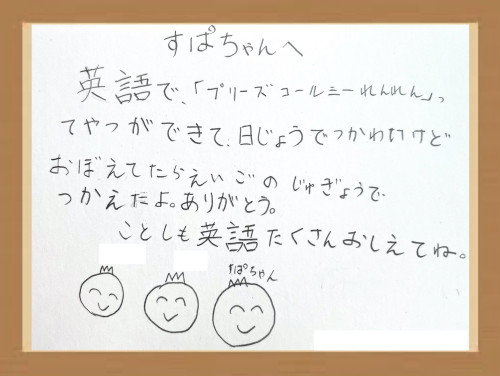 すぱちゃんへ
英語で、「プリーズコールミーれんれん」っ
てやつができて、日じょうでつかわないけど
おぼえてたらえいごのじゅぎょうで、
つかえたよ。ありがとう。
ことしも英語たくさんおしえてね。
すぱちゃん